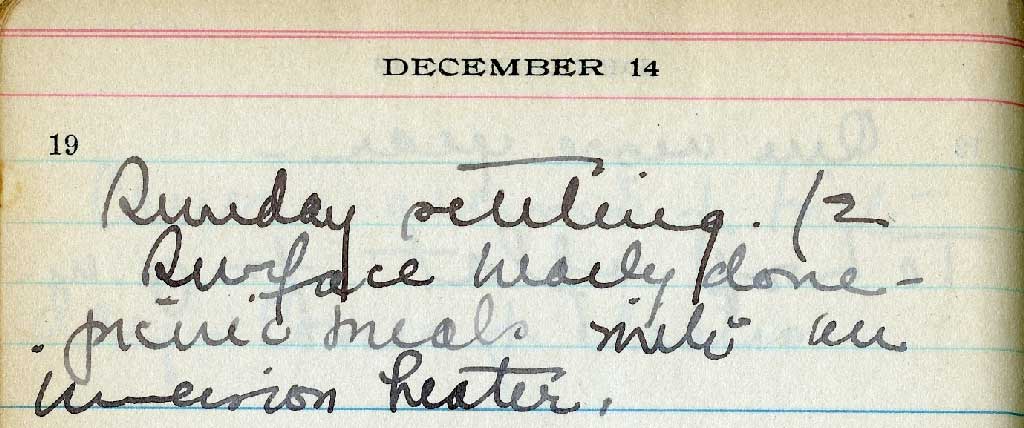 DECEMBER 14
19
Sunday settling. 1/2
Surface nearly done -
picnic meals with an
immersion heater.